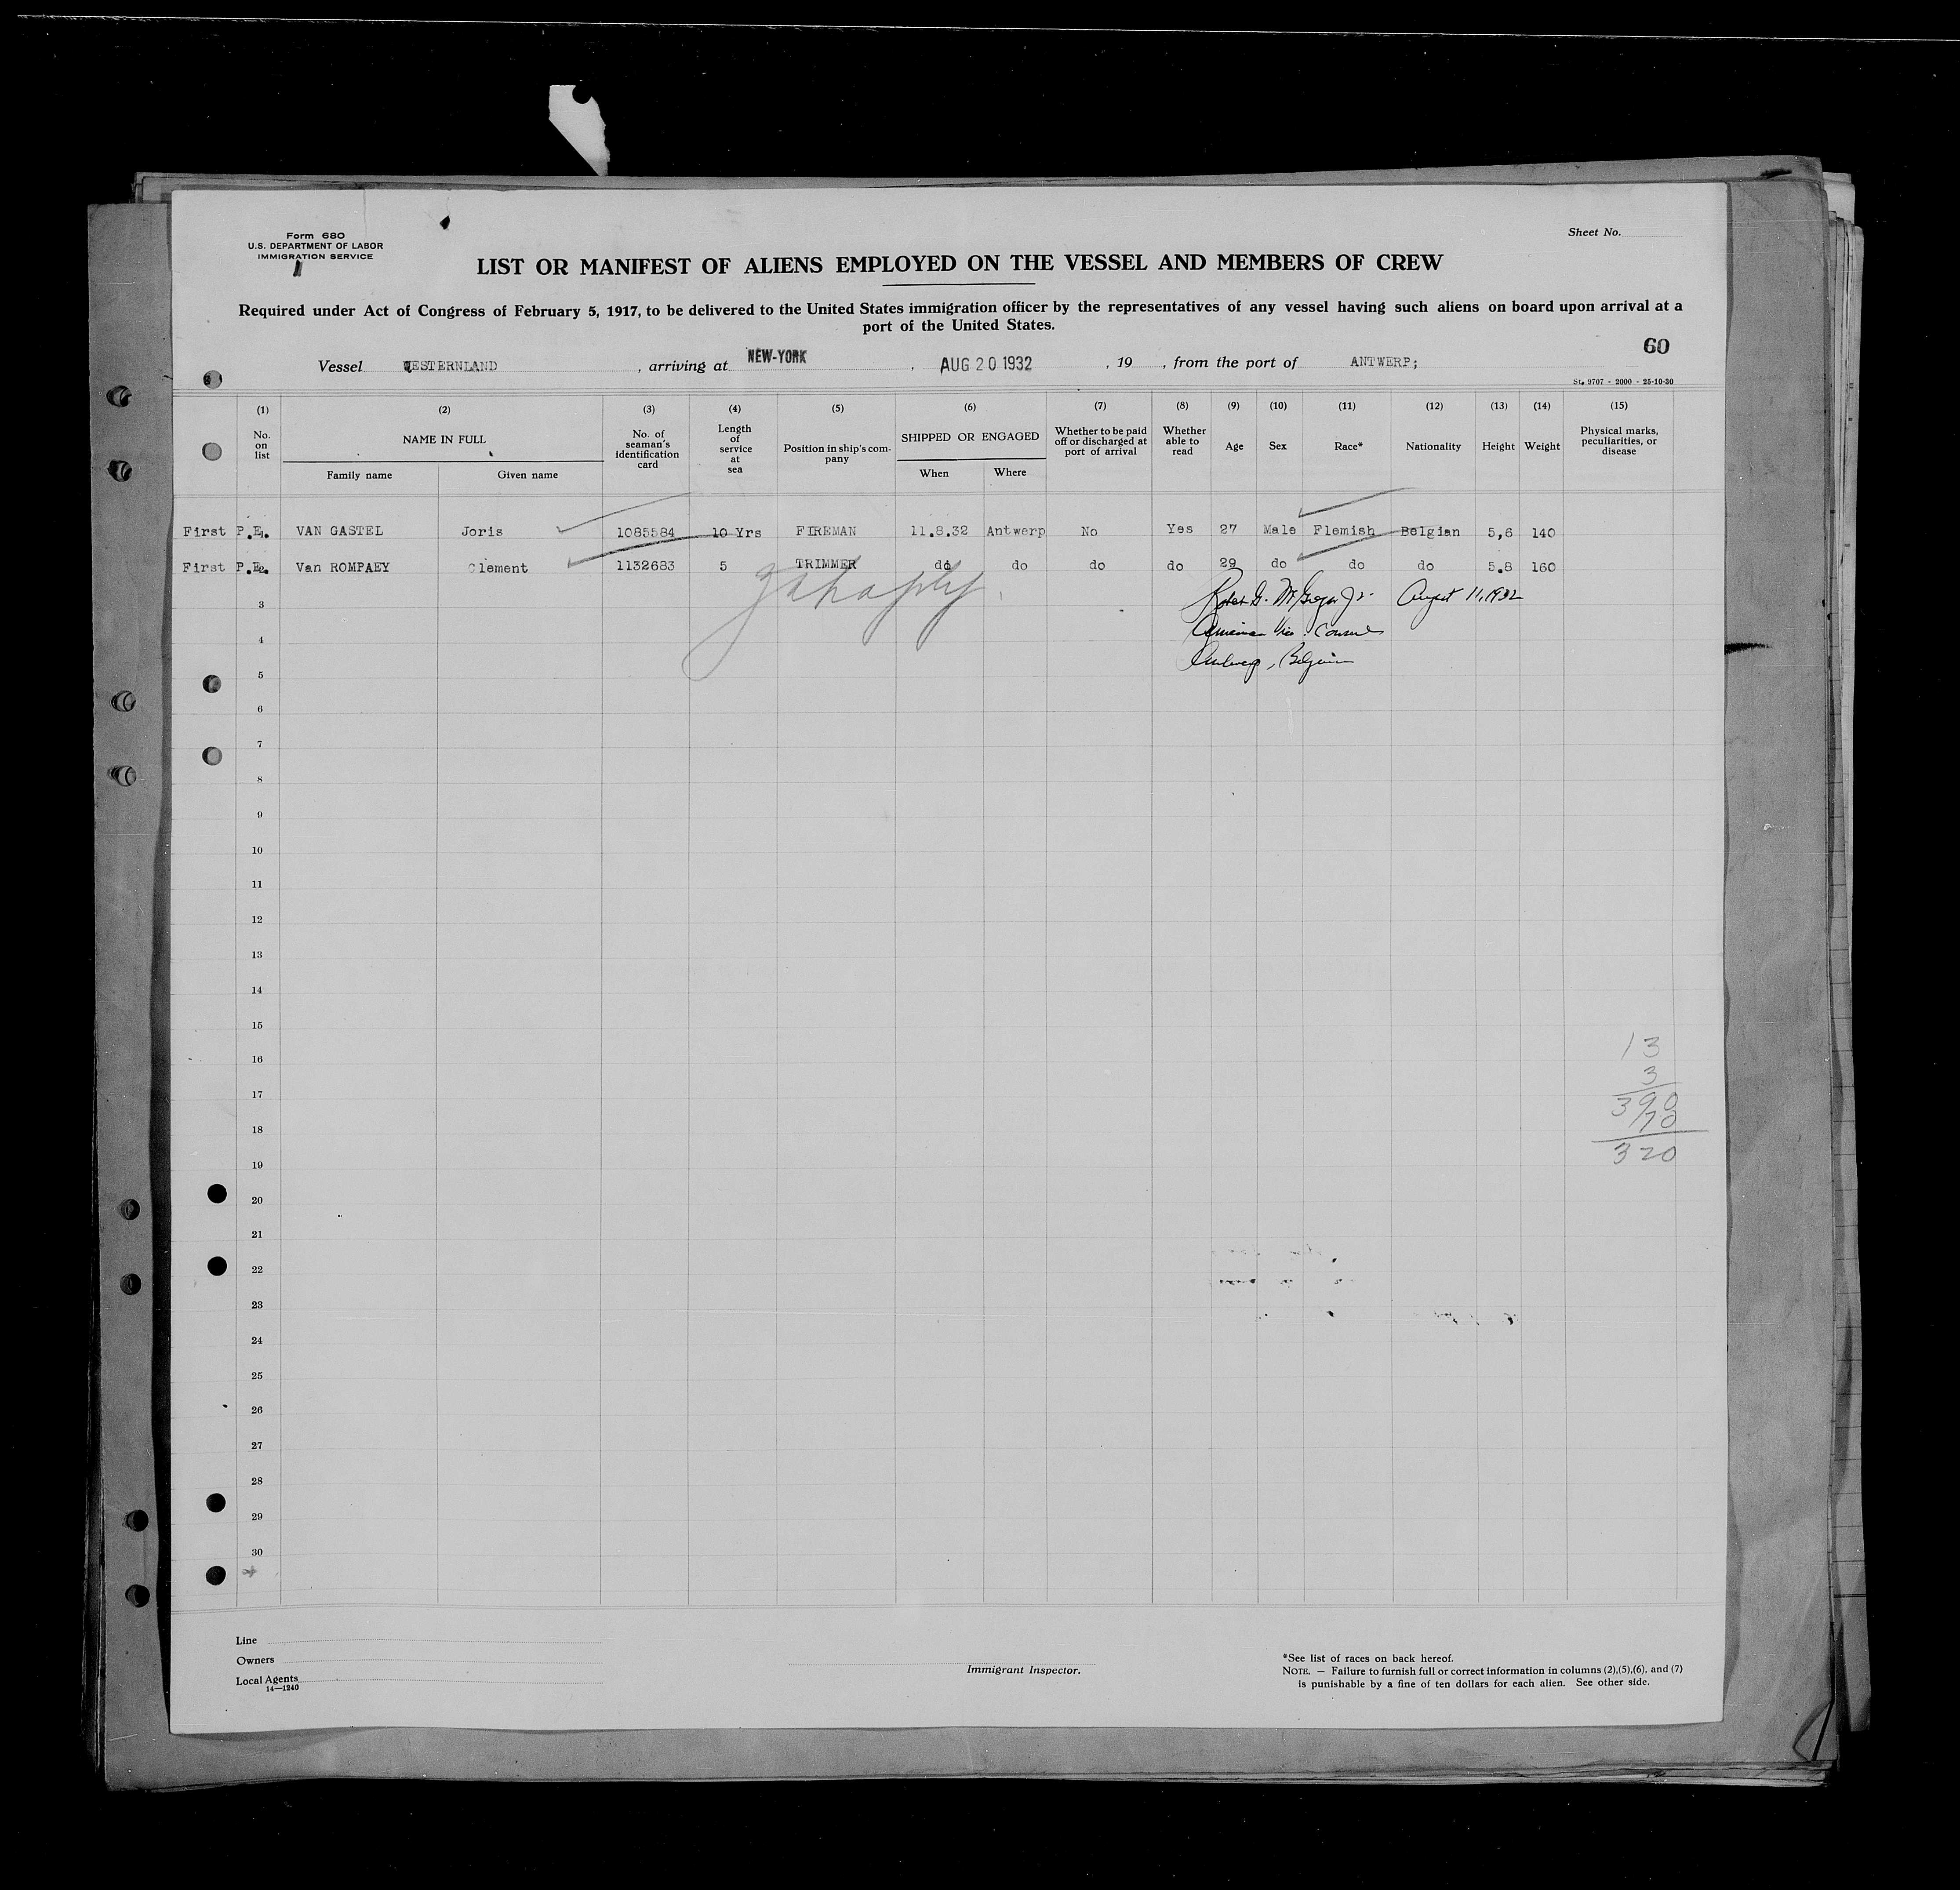 Form 680
U.S. DEPARTMENT OF LABOR
IMMIGRATION SERVICE
Sheet No.
LIST OR MANIFEST OF ALIENS EMPLOYED ON THE VESSEL AND MEMBERS OF CREW
Required under Act of Congress of February 5, 1917, to be delivered to the United States immigration officer by the representatives of any vessel having such aliens on board upon arrival at a
port of the United States.
60
Vessel WESTERNLAND , arriving at NEW-YORK , AUG 20 1932 , 19 , from the port of ANTWERP;
St. 9707 - 2000 - 25-10-30
(1) (2) (3) (4) (5) (6) (7) (8) (9) (10) (11) (12) (13) (14) (15)
No. on list NAME IN FULL Family name Given name No. of seaman's identification card Length of service at sea Position in ship's company SHIPPED OR ENGAGED When Where Whether to be paid off or discharged at port of arrival Whether able to read Age Sex Race* Nationality Height Weight Physical marks, peculiarities, or disease
First P.E. VAN GASTEL Joris 1085584 10 Yrs FIREMAN 11.8.32 Antwerp No Yes 27 Male Flemish Belgian 5,6 140
First P.E. Van ROMPAEY Clement 1132683 5 TRIMMER do do do do 29 do do do 5.8 160
Robert G. McGregor Jr. August 11, 1932
American Vice Consul
Antwerp, Belgium
3
4
5
6
7
8
9
10
11
12
13
14
15
16
17
18
19
20
21
22
23
24
25
26
27
28
29
30
13
3
390
70
320
Line
Owners
Local Agents
14—1240
Immigrant Inspector.
*See list of races on back hereof.
NOTE. — Failure to furnish full or correct information in columns (2),(5),(6), and (7)
is punishable by a fine of ten dollars for each alien. See other side.